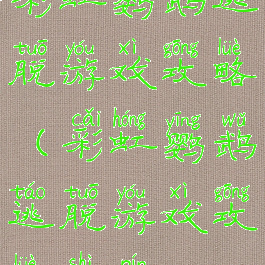 彩虹鹦鹉逃
tuō yóu xì gōng lüè
脱游戏攻略
cǎi hóng yīng wǔ
（彩虹鹦鹉
táo tuō yóu xì gōng
逃脱游戏攻